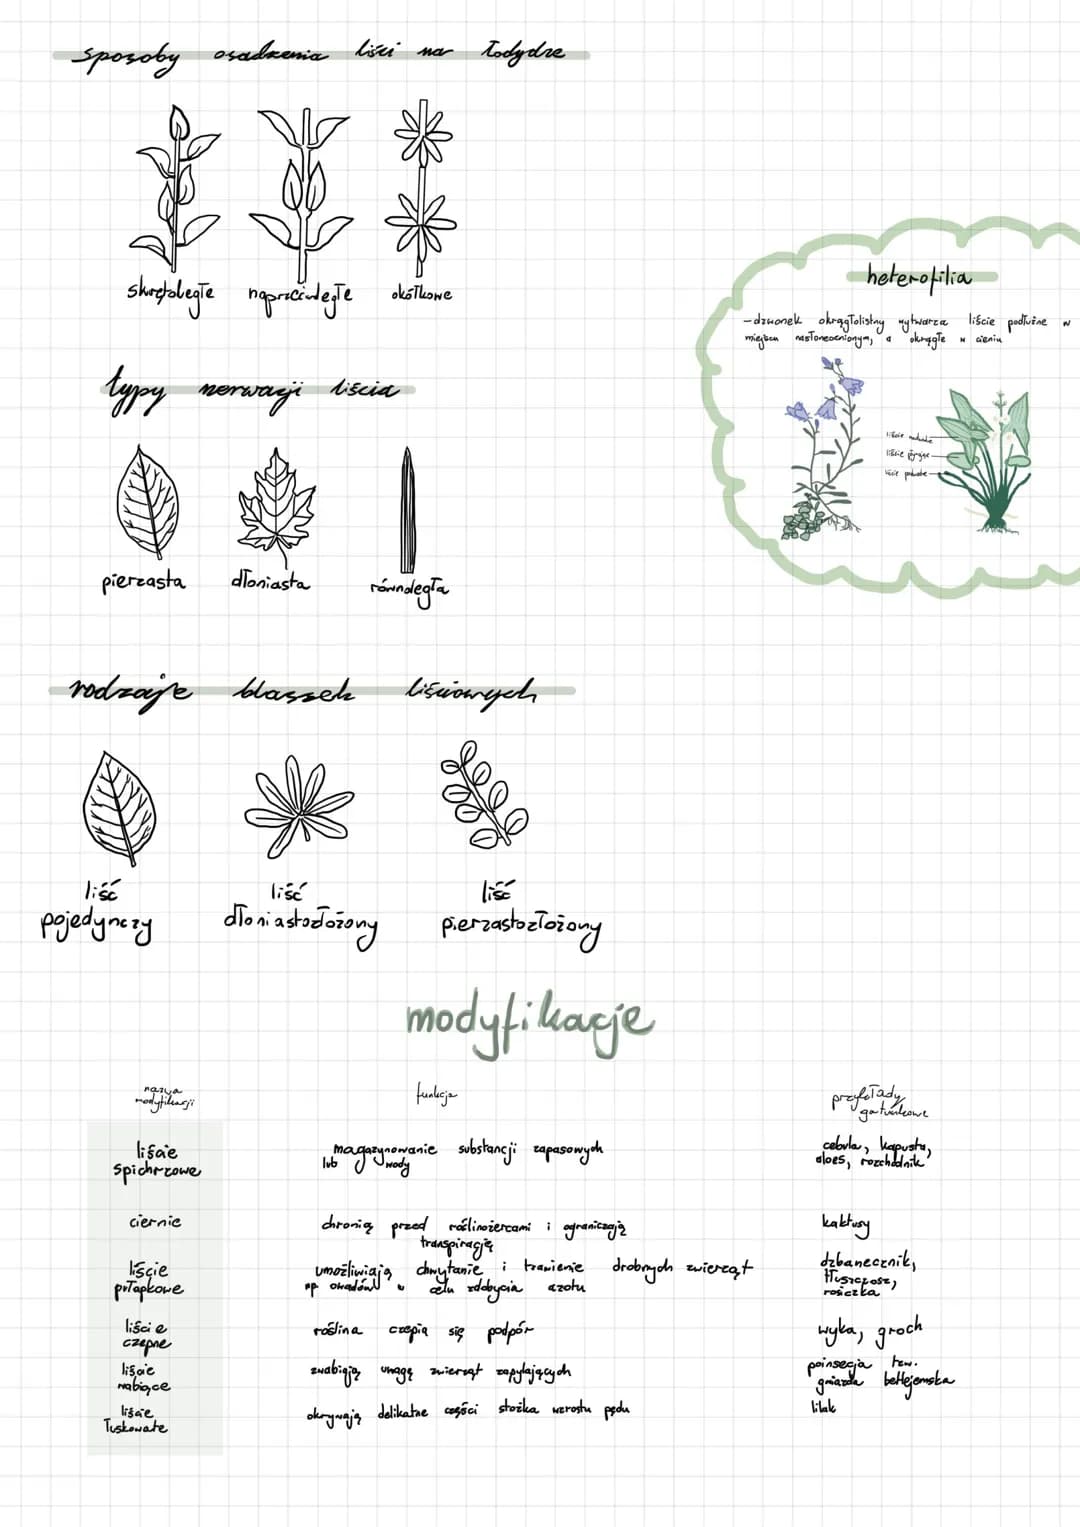 sposoby osadzenia liści na łodydze
skrętoległe naprzeciwległe okółkowe
heterofilia
-dzwonek okrągłolistny wytwarza liście podłużne w
miejscu nasłonecznionym, a okrągłe w cieniu
liście nadwodne
liście pływające
liście podwodne
typy nerwacji liścia
pierzasta dłoniasta równoległa
rodzaje blaszek liściowych
liść liść liść
pojedynczy dłoniastozłożony pierzastozłożony
modyfikacje
nazwa
modyfikacji
funkcja
przykłady
gatunkowe
liście
spichrzowe
magazynowanie substancji zapasowych
lub wody
cebula, kapusta,
aloes, rozchodnik
ciernie
chronią przed roślinożercami i ograniczają
transpirację
kaktusy
liście
pułapkowe
umożliwiają chwytanie i trawienie drobnych zwierząt
np owadów w celu zdobycia azotu
dzbanecznik,
tłuszczosz,
rosiczka
liście
czepne
roślina czepia się podpór
wyka, groch
liście
wabiące
zwabiają uwagę zwierząt zapylających
poinsecja tzw.
gwiazda betlejemska
liście
łuskowate
okrywają delikatne części stożka wzrostu pędu
lilak